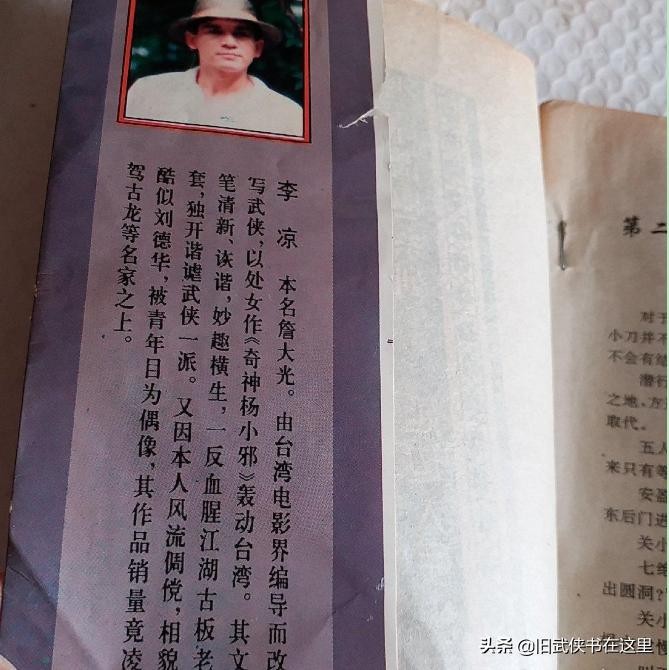 李凉 本名詹大光。由台湾电影界编导而改
写武侠，以处女作《奇神杨小邪》轰动台湾。其文
笔清新、诙谐，妙趣横生，一反血腥江湖古板老
套，独开谐谑武侠一派。又因本人风流倜傥，相貌
酷似刘德华，被青年目为偶像，其作品销量竟凌
驾古龙等名家之上。
第二
对于
小刀并不
不会有结
潜行
之地，方
取代。
五人
来只有等
安
东后门进
关小
七绝
出圆洞？
关小
头条 @旧武侠书在这里